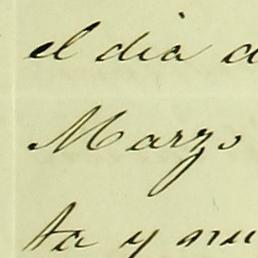 el dia d
Marzo
ta y nu